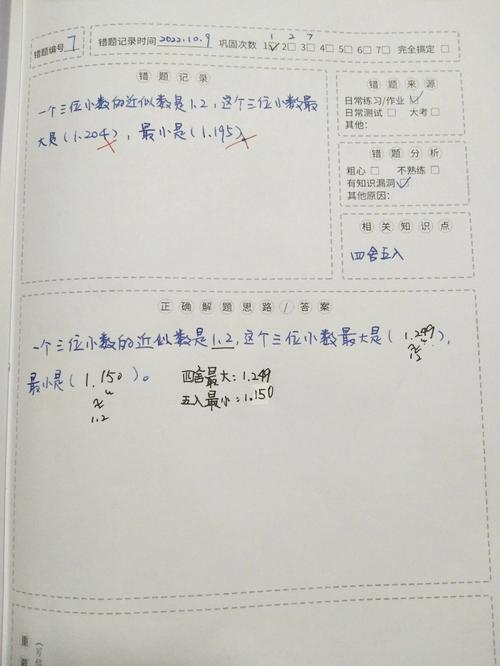 错题编号 7
错题记录时间 2022.10.9 巩固次数 1☑2□3□4□5□6□7□ 完全搞定□
1 2 7
错题记录
一个三位小数的近似数是1.2,这个三位小数最
大是(1.204),最小是(1.195)
错题来源
日常练习/作业☑
日常测试□ 大考□
其他:
错题分析
粗心□ 不熟练□
有知识漏洞☑
其他原因:
相关知识点
四舍五入
正确解题思路/答案
一个三位小数的近似数是1.2,这个三位小数最大是(1.249),
最小是(1.150)。
1.2
四舍最大:1.249
五入最小:1.150